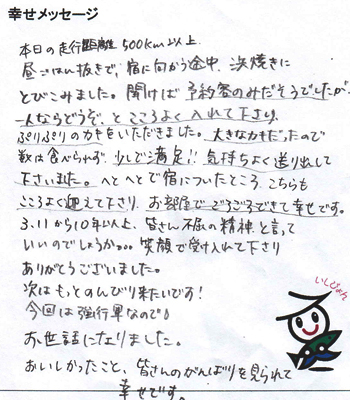 幸せメッセージ
本日の走行距離 500km以上。
昼ごはん抜きで、宿に向かう途中、浜焼きに
とびこみました。聞けば予約客のみだそうでしたが、
一人ならどうぞ、と こころよく 入れて下さり、
ぷりぷりのカキをいただきました。大きなカキだったので
数は食べられず、少しで満足!! 気持ちよく送り出して
下さいました。へとへとで宿についたところ、こちらも
こころよく迎えて下さり、お部屋でごろごろできて幸せです。
3.11から10年以上、皆さん不屈の精神と言って
いいのでしょうか。。。笑顔で受け入れて下さり
ありがとうございました。
次はもっとのんびり来たいです!
今回は強行軍なので
お世話になりました。
おいしかったこと、皆さんのがんばりを見られて
幸せです。
いしぴょん